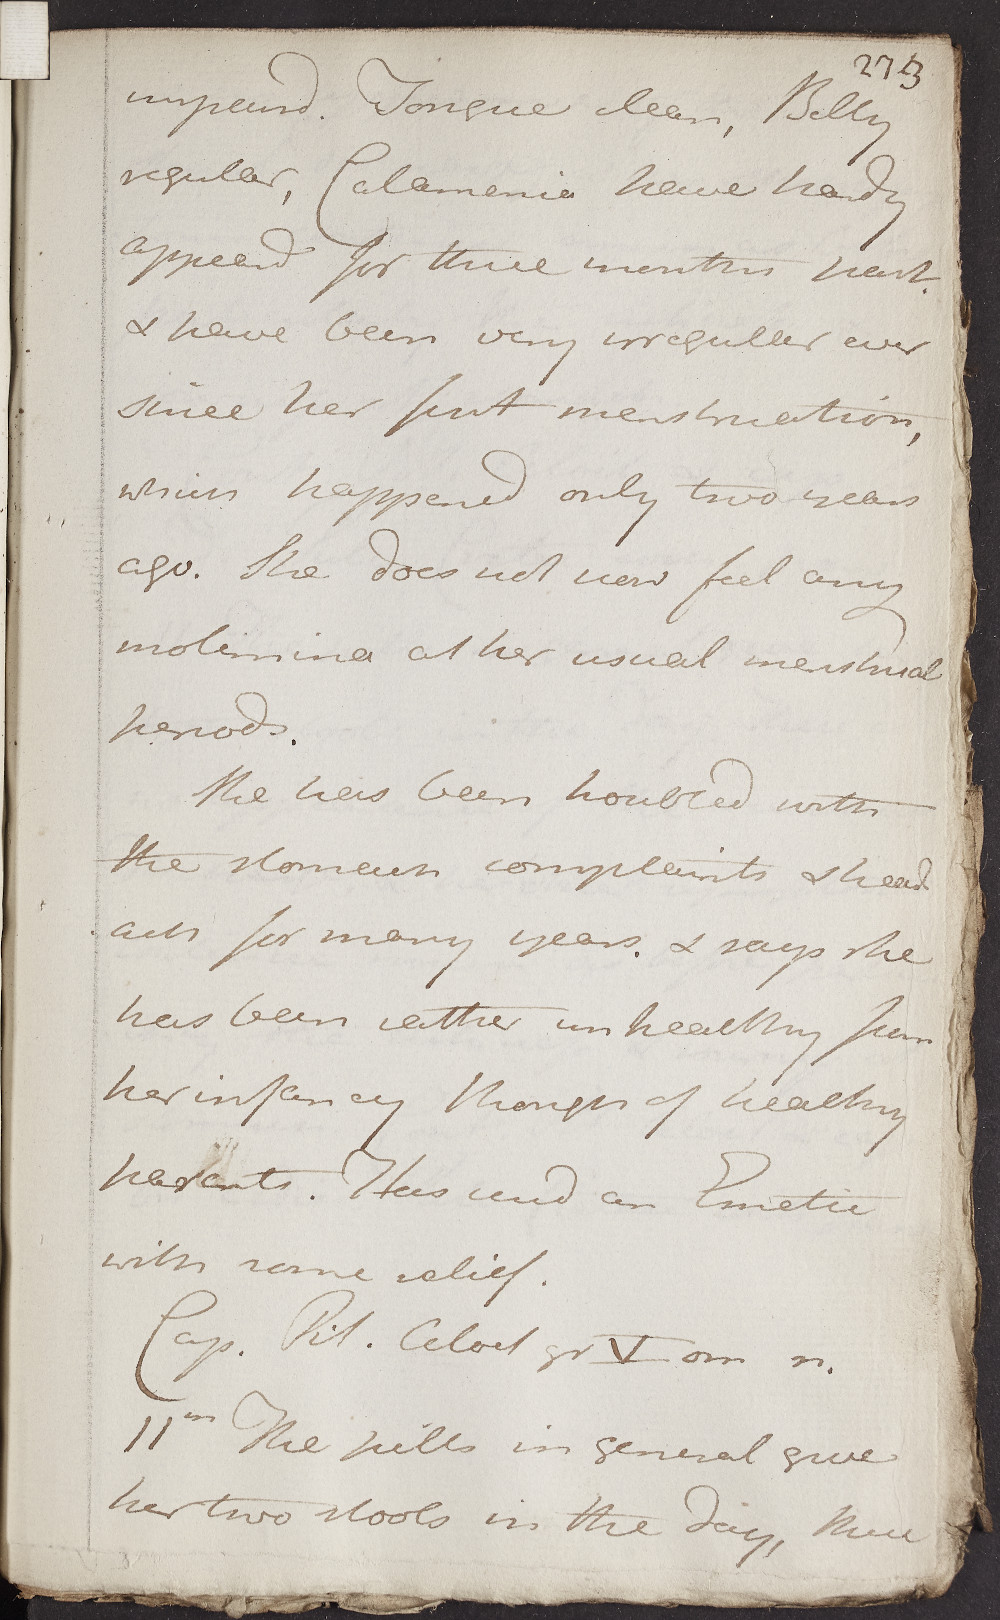 273
impaird. Tongue clean, Belly
regular, Catamenia have hardly
appeard for three months past.
& have been very irregular ever
since her first menstruation,
which happened only two years
ago. She does not now feel any
molimina at her usual menstrual
periods.
She has been troubled with
the stomach complaints & head
ach for many years. & says she
has been rather unhealthy from
her infancy though of healthy
parents. Has used an Emetic
with some relief.
Cap. Pil. Aloet gr V om n.
11th The pills in general give
her two stools in the day, three